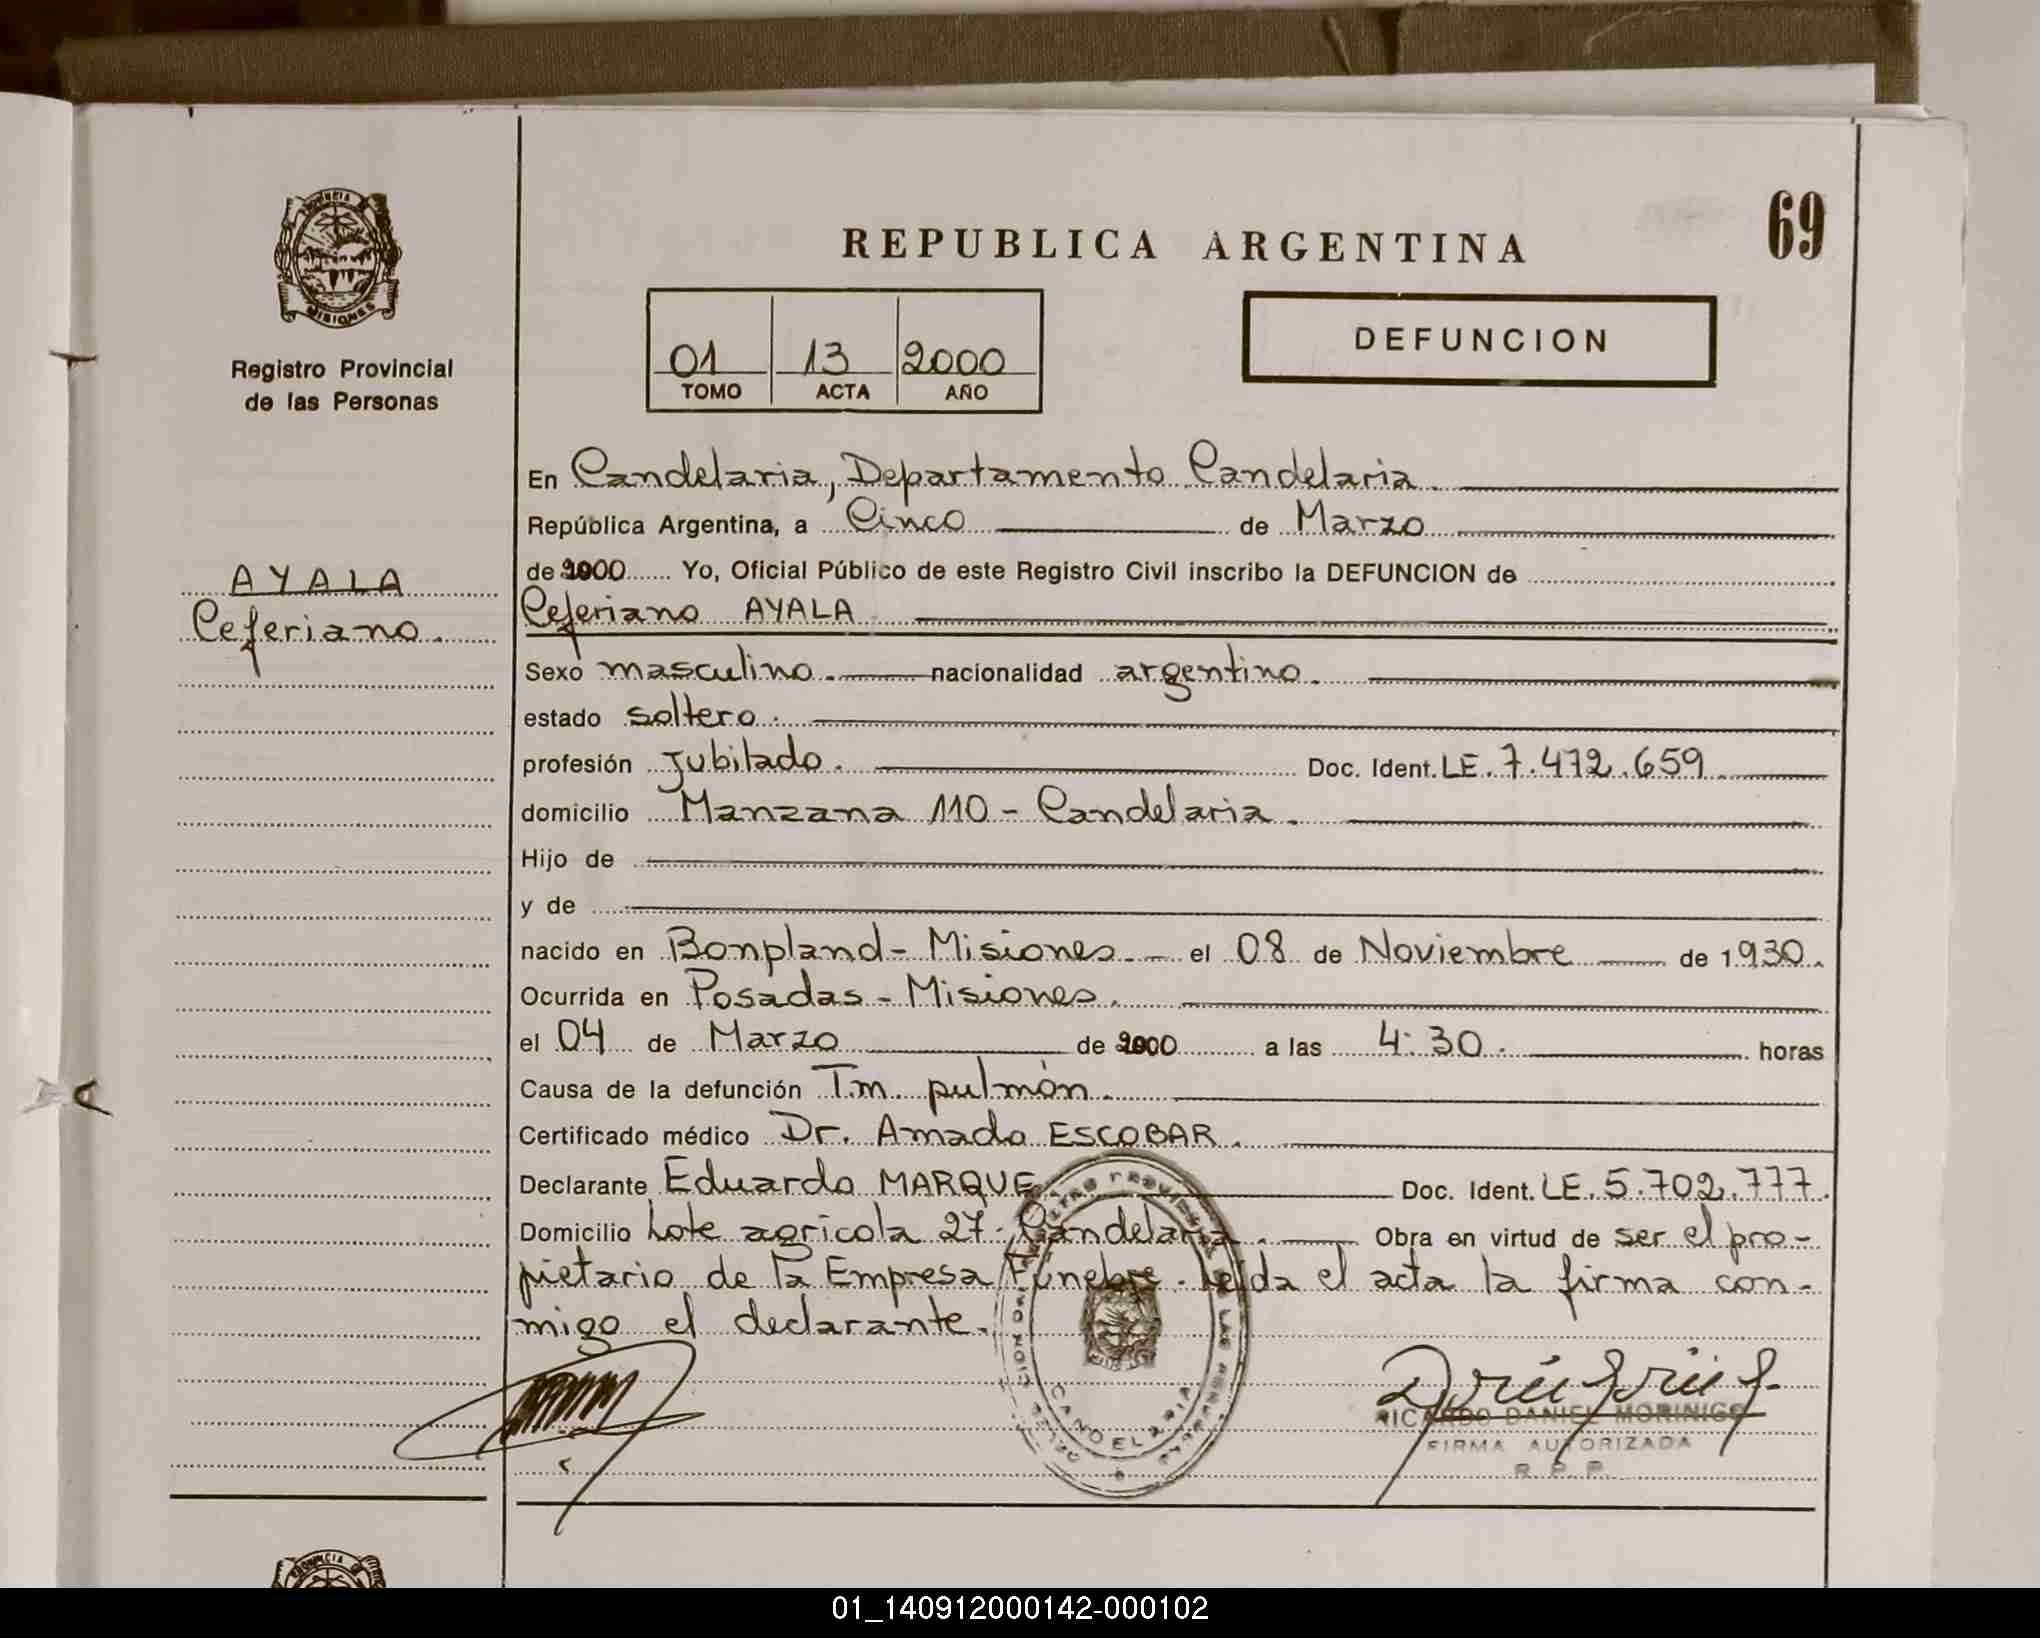 69
REPUBLICA ARGENTINA
PROVINCIA DE
MISIONES
Registro Provincial
de las Personas
01 13 2000
TOMO ACTA AÑO
DEFUNCION
En Candelaria, Departamento Candelaria.
República Argentina, a Cinco de Marzo
AYALA
Ceferiano.
de 2000 Yo, Oficial Público de este Registro Civil inscribo la DEFUNCION de
Ceferiano AYALA
Sexo masculino. nacionalidad argentino.
estado soltero.
profesión Jubilado. Doc. Ident. LE. 7.472.659
domicilio Manzana 110 - Candelaria.
Hijo de
y de
nacido en Bonpland - Misiones. el 08 de Noviembre de 1930.
Ocurrida en Posadas - Misiones.
el 04 de Marzo de 2000 a las 4:30. horas
Causa de la defunción Tm. pulmón.
Certificado médico Dr. Amado ESCOBAR.
Declarante Eduardo MARQUE Doc. Ident. LE. 5.702.777.
Domicilio Lote agrícola 27 - Candelaria. Obra en virtud de ser el pro-
pietario de la Empresa Fúnebre. Leída el acta la firma con-
migo el declarante.
CANDELARIA
RICARDO DANIEL MORINIGO
FIRMA AUTORIZADA
R. P. P.
PROVINCIA
01_140912000142-000102